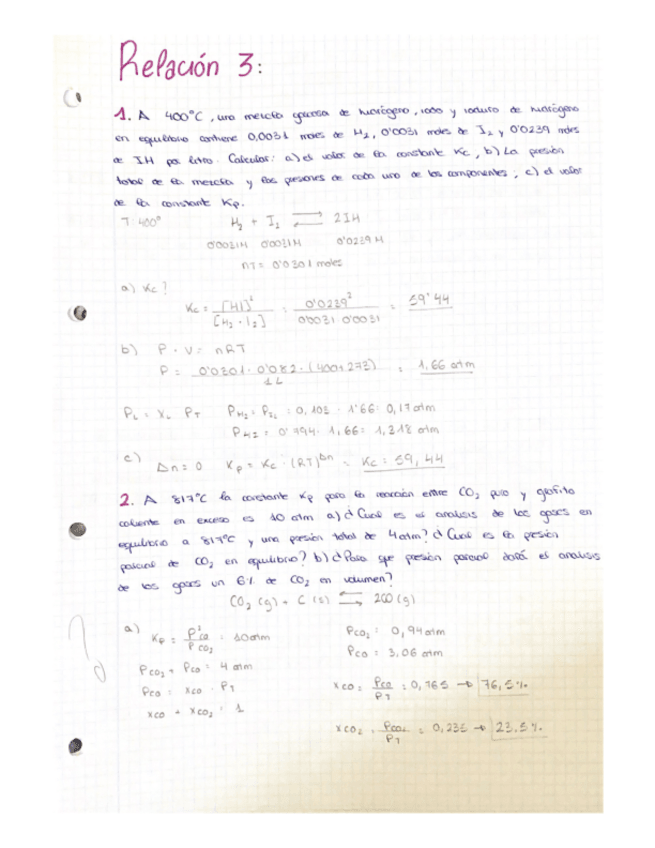 Relación 3:
1. A 400°C, una mezcla gaseosa de hidrógeno, iodo y ioduro de hidrógeno
en equilibrio contiene 0,0031 moles de H2, 0'0031 moles de I2 y 0'0239 moles
de IH por litro. Calcular: a) el valor de la constante Kc, b) La presión
total de la mezcla y las presiones de cada uno de los componentes; c) el valor
de la constante Kp.
T: 400° H2 + I2 ⇌ 2IH
0'0031M 0'0031M 0'0239M
nT = 0'0301 moles
a) Kc?
Kc = [HI]² / [H2 · I2] = 0'0239² / 0'0031 · 0'0031 = 59'44
b) P · V = nRT
P = 0'0301 · 0'082 · (400+273) / 1L = 1,66 atm
Pi = Xi PT PH2 = PI2 = 0,103 · 1'66 = 0,17 atm
PHI = 0'794 · 1,66 = 1,318 atm
c) Δn = 0 Kp = Kc · (RT)^Δn = Kc = 59,44
2. A 817°C la constante Kp para la reacción entre CO2 puro y grafito
caliente en exceso es 10 atm a) ¿Cual es el analisis de los gases en
equilibrio a 817°C y una presión total de 4 atm? ¿Cual es la presión
parcial de CO2 en equilibrio? b) ¿Para que presión parcial dará el analisis
de los gases un 6% de CO2 en volumen?
CO2 (g) + C (s) ⇌ 2CO (g)
a) Kp = P²CO / PCO2 = 10 atm PCO2 = 0,94 atm
PCO = 3,06 atm
PCO2 + PCO = 4 atm
PCO = XCO · PT XCO = PCO / PT = 0,765 → 76,5%
XCO + XCO2 = 1
XCO2 = PCO2 / PT = 0,235 → 23.5%.